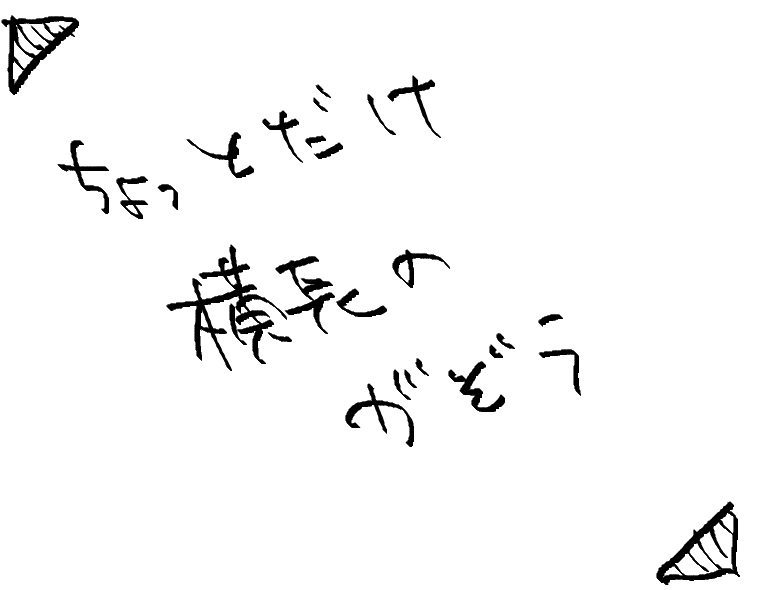 ちょっとだけ
横長の
がぞう